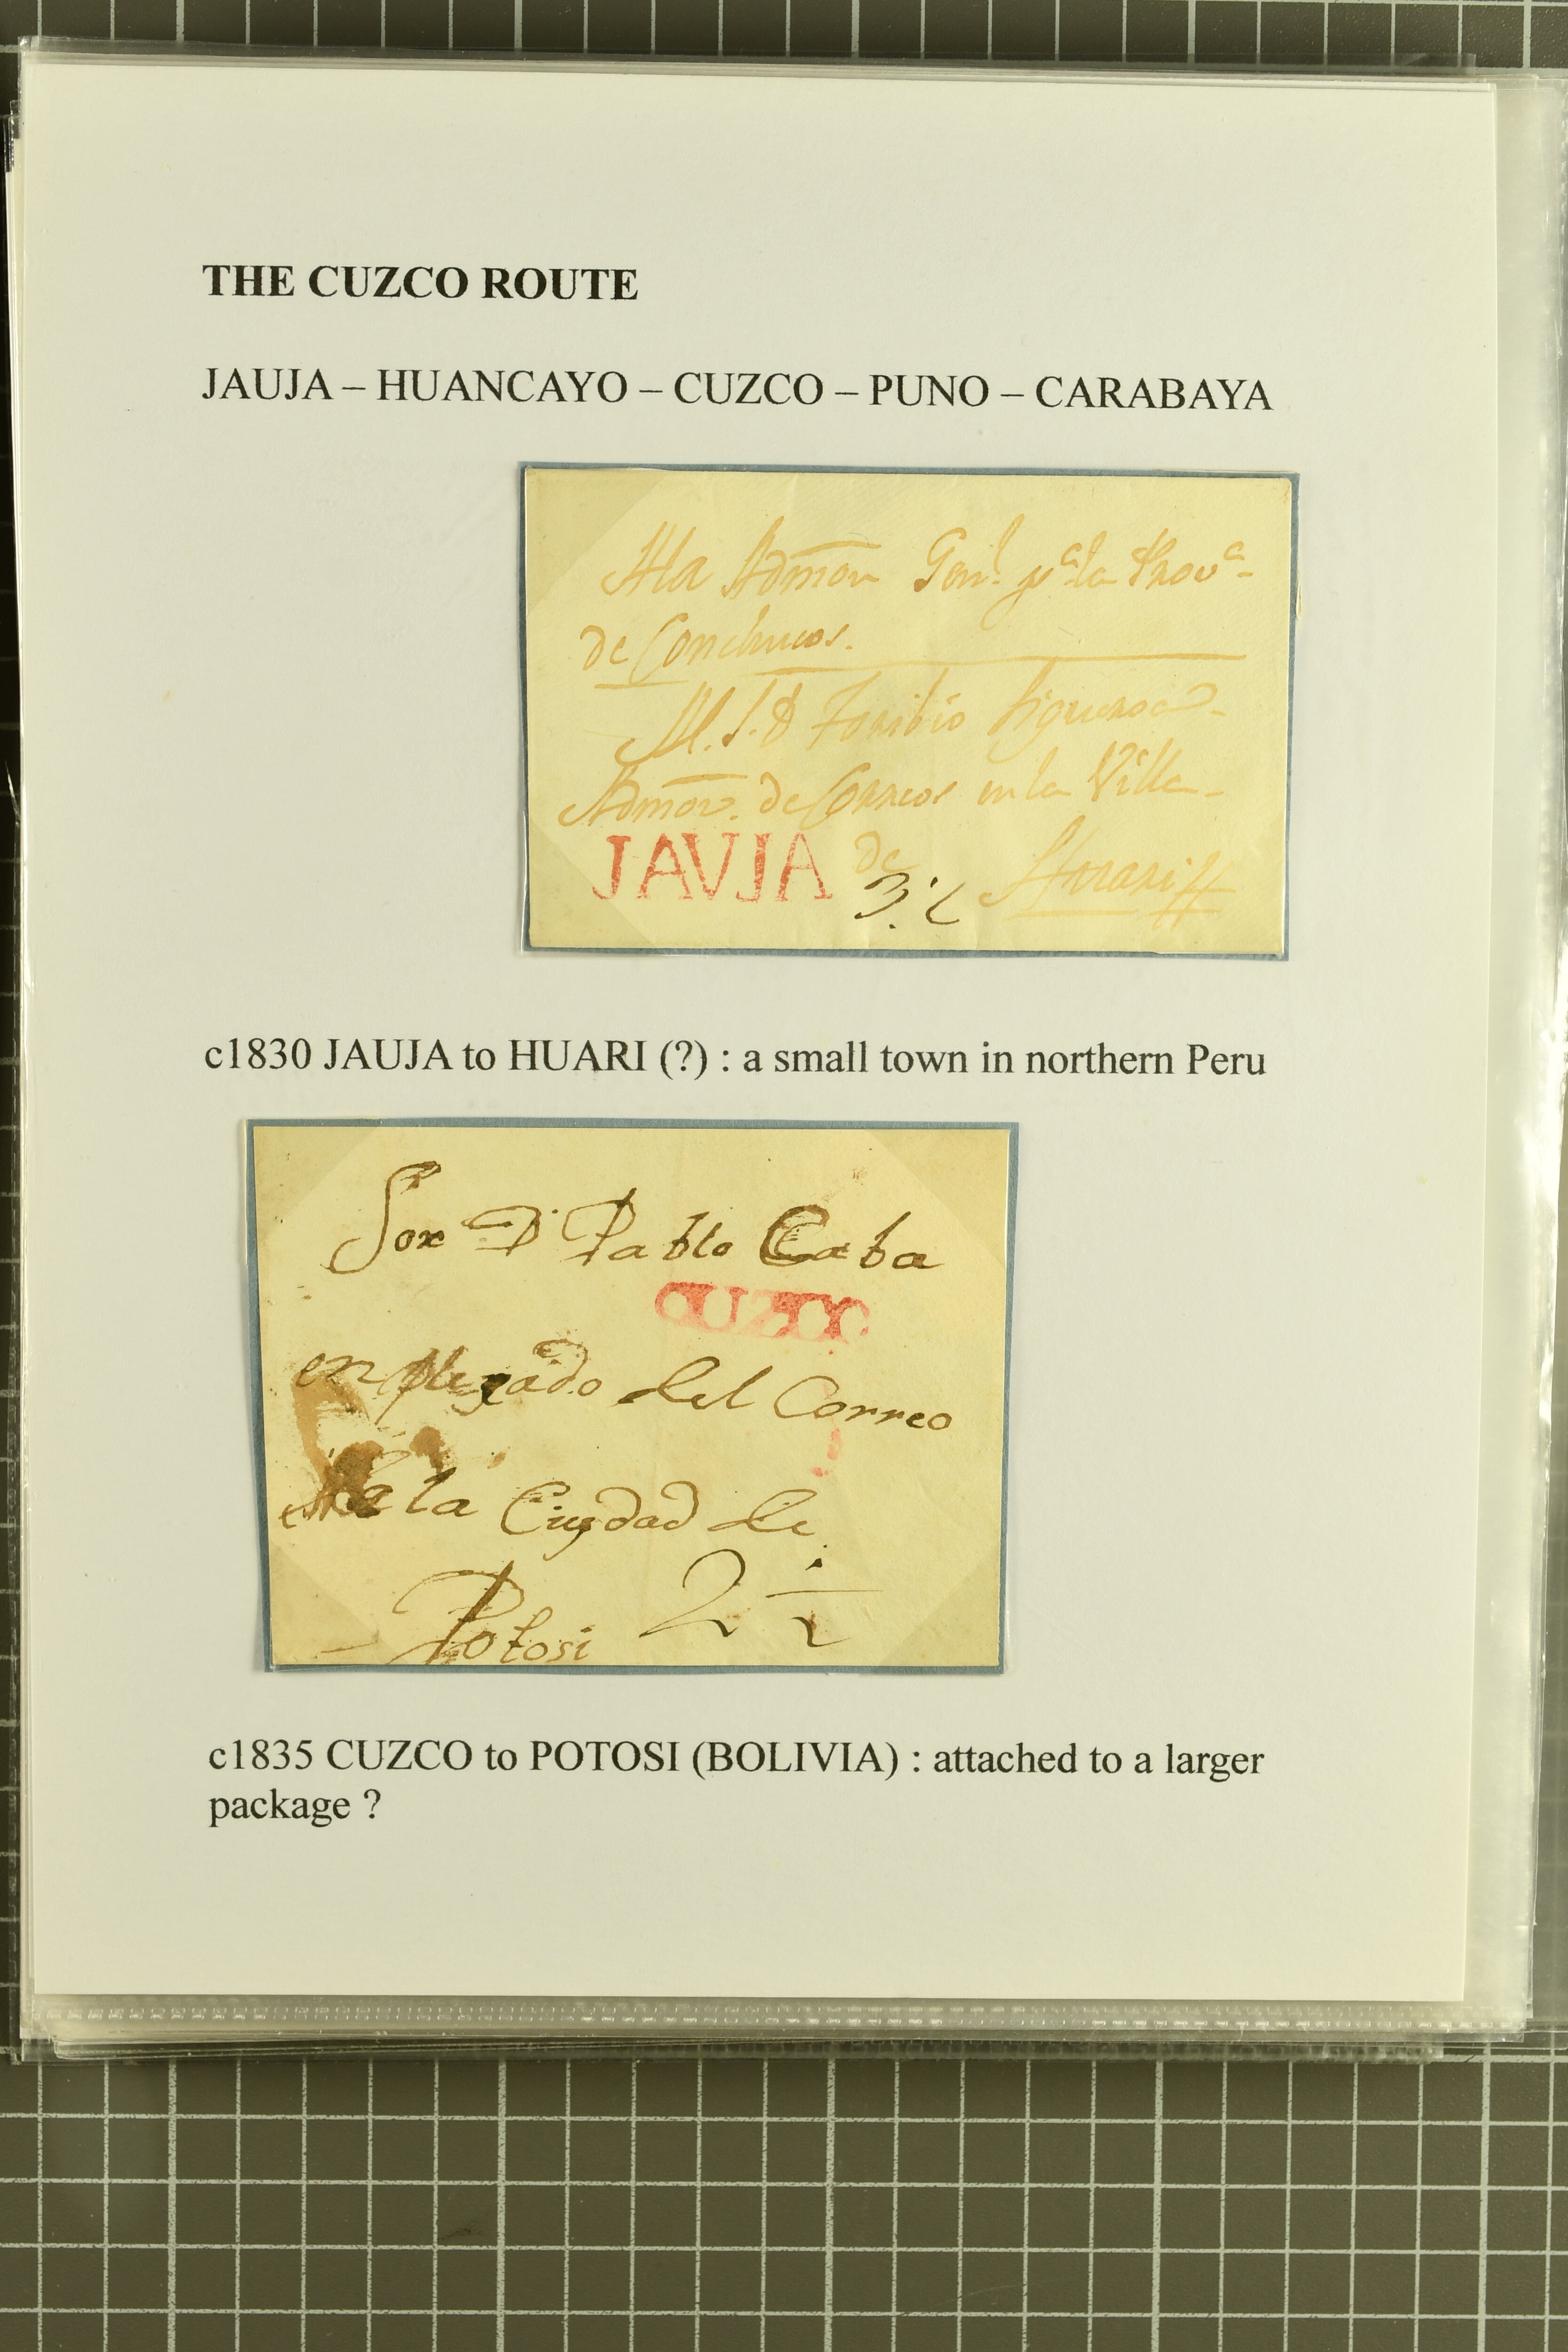 THE CUZCO ROUTE
JAUJA – HUANCAYO – CUZCO – PUNO – CARABAYA
Ala Admon Genl. pa. la Prova.
de Conchucos.
Toribio Figueroa
Admor. de Correos en la Villa
de Huari
JAVJA
c1830 JAUJA to HUARI (?) : a small town in northern Peru
Sor D. Pablo Caba
CUZCO
enpleado del Correo
la Ciudad de
Potosi 2 1/2
c1835 CUZCO to POTOSI (BOLIVIA) : attached to a larger
package ?